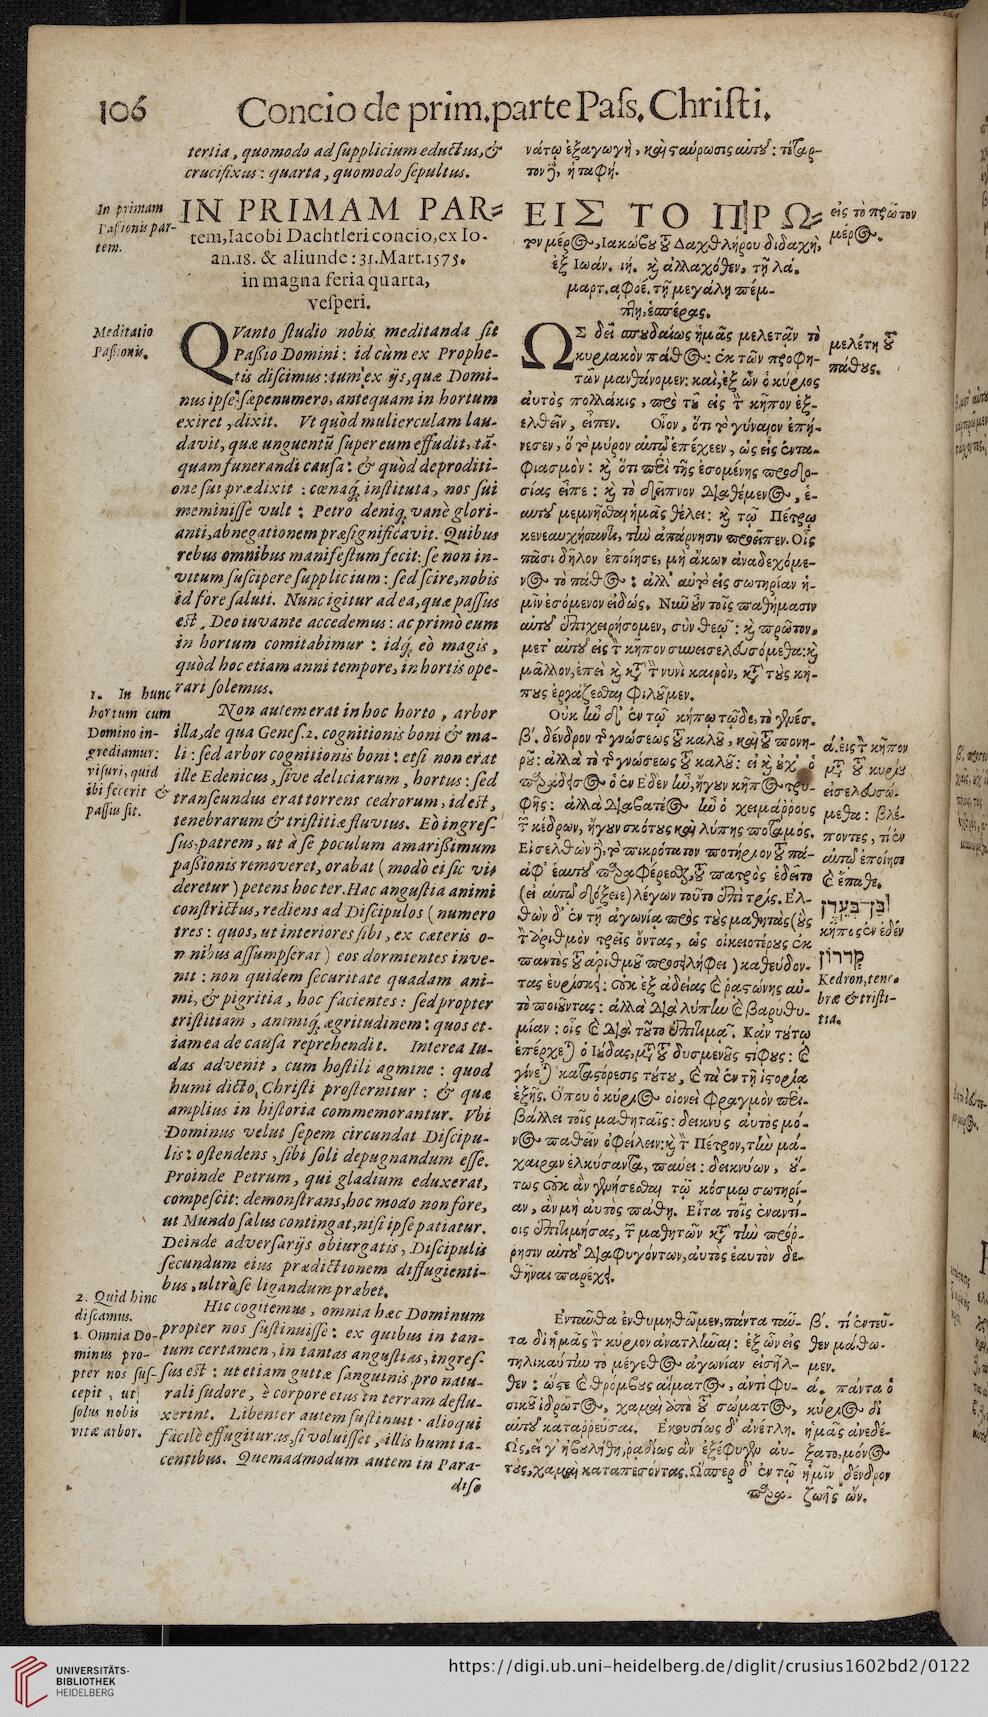 106 Concio de prim. parte Pass. Christi.
tertia, quomodo ad supplicium eductus, &
crucifixus: quarta, quomodo sepultus.
In primam
Passionis par-
tem.
IN PRIMAM PAR-
tem, Iacobi Dachtleri concio, ex Io-
an. 18. & aliunde: 31. Mart. 1575.
in magna feria quarta,
vesperi.
Meditatio
Passionis.
QVanto studio nobis meditanda sit
Passio Domini: id cùm ex Prophe-
tis discimus: tum ex ijs, quæ Domi-
nus ipse sæpenumero, antequam in hortum
exiret, dixit. Vt quòd mulierculam lau-
davit, quæ unguentũ super eum effudit, tã-
quam funerandi causa: & quòd de proditi-
one sui prædixit: cœnaq́; instituta, nos sui
meminisse vult: Petro deniq; vanè glori-
anti, abnegationem præsignificavit. Quibus
rebus omnibus manifestum fecit: se non in-
vitum suscipere supplicium: sed scire, nobis
id fore saluti. Nunc igitur ad ea, quæ passus
est, Deo iuvante accedemus: ac primò eum
in hortum comitabimur: idq́; eò magis,
quòd hoc etiam anni tempore, in hortis ope-
rari solemus.
1. In hunc
hortum cum
Domino in-
grediamur:
visuri, quid
ibi fecerit &
passus sit.
Non autem erat in hoc horto, arbor
illa, de qua Genes. 2. cognitionis boni & ma-
li: sed arbor cognitionis boni: etsi non erat
ille Edenicus, sive deliciarum, hortus: sed
transeundus erat torrens cedrorum, id est,
tenebrarum & tristitiæ fluvius. Eò ingres-
sus, patrem, ut à se poculum amarissimum
passionis removeret, orabat (modò ei sic vi-
deretur) petens hoc ter. Hac angustia animi
constrictus, rediens ad Discipulos (numero
tres: quos, ut interiores sibi, ex cæteris o-
mnibus assumpserat) eos dormientes inve-
nit: non quidem securitate quadam ani-
mi, & pigritia, hoc facientes: sed propter
tristitiam, animiq́; ægritudinem: quos et-
iam ea de causa reprehendit. Interea Iu-
das advenit, cum hostili agmine: quod
humi dicto Christi prosternitur: & quæ
amplius in historia commemorantur. Vbi
Dominus velut sepem circundat Discipu-
lis: ostendens, sibi soli depugnandum esse.
Proinde Petrum, qui gladium eduxerat,
compescit: demonstrans, hoc modo non fore,
ut Mundo salus contingat, nisi ipse patiatur.
Deinde adversarijs obiurgatis, Discipulis
secundum eius prædictionem diffugienti-
bus, ultrò se ligandum præbet.
2. Quid hinc
discamus.
1. Omnia Do-
minus pro-
pter nos sus-
cepit, ut
solus nobis
vitæ arbor.
Hic cogitemus, omnia hæc Dominum
propter nos sustinuisse: ex quibus in tan-
tum certamen, in tantas angustias, ingres-
sus est: ut etiam guttæ sanguinis, pro natu-
rali sudore, è corpore eius in terram deflu-
xerint. Libenter autem sustinuit: alioqui
facilè effugiturus, si voluisset, illis humi ia-
centibus. Quemadmodum autem in Para-
diso
νάτῳ ἐξαγωγὴ, καὶ ςαύρωσις αὐτοῦ: τέταρ-
τον δὲ, ἡ ταφή.
ΕΙΣ ΤΟ ΠΡΩ-
τον μέρος, Ιακώβου τοῦ Δαχθλήρου διδαχὴ,
ἐξ Ιωάν. ιή. καὶ ἀλλαχόθεν. τῇ λά.
μαρτ. αφοέ. τῇ μεγάλῃ πέμ-
πτῃ, ἑσπέρας.
εἰς τὸ πρῶτον
μέρος.
ΩΣ δεῖ σπουδαίως ἡμᾶς μελετᾷν τὸ
κυριακὸν πάθος: ἐκ τῶν προφη-
τῶν μανθάνομεν: καὶ, ἐξ ὧν ὁ κύριος
αὐτὸς πολλάκις, πρὸ τοῦ εἰς τὸν κῆπον ἐξ-
ελθεῖν, εἶπεν. Οἷον, ὅτι τὸ γύναιον ἐπῄ-
νεσεν, ὃ τὸ μύρον αὐτῷ ἐπέχεεν, ὡς εἰς ἐντα-
φιασμὸν: καὶ ὅτι περὶ τῆς ἐσομένης προδο-
σίας εἶπε: καὶ τὸ δεῖπνον διαθέμενος, ἑ-
αυτοῦ μεμνῆσθαι ἡμᾶς θέλει: καὶ τῷ Πέτρῳ
κενεαυχήσαντι, τὴν ἀπάρνησιν προεῖπεν. Οἷς
πᾶσι δῆλον ἐποίησε, μὴ ἄκων ἀναδεχόμε-
νος τὸ πάθος: ἀλλ' αὐτὸ εἰς σωτηρίαν ἡ-
μῖν ἐσόμενον εἰδώς. Νῦν οὖν τοῖς παθήμασιν
αὐτοῦ ἐπιχειρήσομεν, σὺν θεῷ: καὶ πρῶτον,
μετ' αὐτοῦ εἰς τὸν κῆπον συνεισελευσόμεθα: καὶ
μᾶλλον, ἐπεὶ καὶ κατὰ τὸν νυνὶ καιρὸν, κατὰ τοὺς κή-
πους ἐργάζεσθαι φιλοῦμεν.
μελέτη τοῦ
πάθους.
Οὐκ ἦν δ' ἐν τῷ κήπῳ τῷδε, τὸ γενέσ.
β'. δένδρον τῆς γνώσεως τοῦ καλοῦ, καὶ τοῦ πονη-
ροῦ: ἀλλὰ τὸ τῆς γνώσεως τοῦ καλοῦ: εἰ καὶ οὐχ' ὁ
παράδεισος ὁ ἐν Εδεν ἦν, ἤγουν κῆπος τρυ-
φῆς: ἀλλὰ διαβατέος ἦν ὁ χειμάῤῥους
τῶν κέδρων, ἤγουν σκότους καὶ λύπης ποταμός.
Εἰσελθὼν δὲ, τὸ πικρότατον ποτήριον τοῦ πά-
θους
ἀφ' ἑαυτοῦ παραφέρεσθαι, τοῦ πατρὸς ἐδεῖτο
(εἰ αὐτῷ δόξειε) λέγων τοῦτο ἐπὶ τρίς. Ελ-
θὼν δ' ἐν τῇ ἀγωνίᾳ πρὸς τοὺς μαθητὰς (οὓς
τὸν ἀριθμὸν τρεῖς ὄντας, ὡς οἰκειοτέρους ἐκ
παντὸς τοῦ ἀριθμοῦ προσειλήφει) καθεύδον-
τας εὑρίσκει: οὐκ ἐξ ἀδείας καὶ ῥαςώνης αὐ-
τὸ ποιοῦντας: ἀλλὰ διὰ λύπην καὶ βαρυθυ-
μίαν: οἷς καὶ διὰ τοῦτο ἐπιτιμᾷ. Κἀν τούτῳ
ἐπέρχεται ὁ Ιούδας, μετὰ τοῦ δυσμενοῦς ςίφους: καὶ
γίνεται καταςόρεσις τούτου, καὶ τὰ ἐν τῇ ἱςορίᾳ
ἑξῆς. Ὅπου ὁ κύριος οἱονεὶ φραγμὸν περι-
βάλλει τοῖς μαθηταῖς: δεικνὺς αὐτὸς μό-
νος παθεῖν ὀφείλειν: καὶ τὸν Πέτρον, τὴν μά-
χαιραν ἑλκύσαντα, παύει: δεικνύων, οὕ-
τως οὐκ ἂν γενήσεσθαι τῷ κόσμῳ σωτηρί-
αν, ἂν μὴ αὐτὸς πάθῃ. Εἶτα τοῖς ἐναντί-
οις ἐπιτιμήσας, τῶν μαθητῶν κατὰ τὴν πρόῤ-
ρησιν αὐτοῦ διαφυγόντων, αὐτὸς ἑαυτὸν δε-
θῆναι παρέχει.
ά. εἰς τὸν κῆπον
μετὰ τοῦ κυρίου
εἰσελευσώ-
μεθα: βλέ-
ποντες, τί ἐν
αὐτῷ ἐποίησε
καὶ ἔπαθε.
κῆπος ἐν ἐδέν
קדרון
Kedron, tene-
bræ & tristi-
tia.
Ενταῦθα ἐνθυμηθῶμεν, πάντα ταῦ-
τα δι' ἡμᾶς τὸν κύριον ἀνατλῆναι: ἐξ ὧν εἰς
τηλικαύτην τὸ μέγεθος ἀγωνίαν εἰσῆλ-
θεν: ὥςε καὶ θρόμβους αἵματος, ἀντὶ φυ-
σικοῦ ἱδρῶτος, χαμαὶ ἀπὸ τοῦ σώματος
αὐτοῦ καταῤῥεῦσαι. Εκουσίως δ' ἀνέτλη.
Ως, εἴ γ' ἠβουλήθη, ῥᾳδίως ἂν ἐξέφυγεν αὐ-
τοὺς, χαμαὶ καταπεσόντας. Ὥσπερ δ' ἐν τῷ
παρα-
β'. τί ἐντεῦ-
θεν μάθω-
μεν.
ά. πάντα ὁ
κύριος δι'
ἡμᾶς ἀνεδέ-
ξατο, μόνος
ἡμῖν δένδρον
ζωῆς ὤν.
UNIVERSITÄTS-
BIBLIOTHEK
HEIDELBERG
https://digi.ub.uni-heidelberg.de/diglit/crusius1602bd2/0122